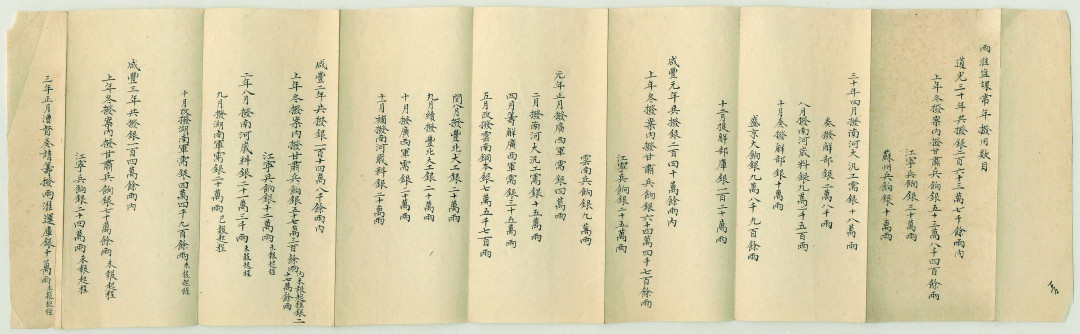 兩淮鹽課常年撥用數目
道光三十年共撥銀二百六十三萬七千餘兩內
上年冬撥案內撥甘肅兵餉銀五十三萬八千四百餘兩
江寧兵餉銀三十萬兩
蘇州兵餉銀十萬兩
三十年四月撥南河大汛工需銀十八萬兩
奏撥解部銀二萬八千兩
八月撥南河歲料銀九萬二千五百兩
十月奏撥解部銀十萬兩
盛京大餉銀九萬八千九百餘兩
十二月提解部庫銀一百二十萬兩
咸豐元年共撥銀二百四十萬餘兩內
上年冬撥案內撥甘肅兵餉銀六十四萬四千七百餘兩
江寧兵餉銀二十五萬兩
雲南兵餉銀九萬兩
元年正月撥廣西軍需銀四萬兩
二月撥南河大汛工需銀十五萬兩
四月籌解廣西軍需銀三十五萬兩
五月改撥雲南銅本銀七萬五千七百兩
閏八月撥豐北大工銀二十萬兩
九月續撥豐北大工銀二十萬兩
十月撥廣西軍需銀二十萬兩
十一月補撥南河歲料銀二十萬兩
咸豐二年共撥銀一百十四萬八千餘兩內
上年冬撥案內撥甘肅兵餉銀五十七萬二百餘兩內未報起程銀二十七萬餘兩
江寧兵餉銀十二萬兩未報起程
二年八月撥南河歲料銀二十一萬三千兩未報起程
九月撥湖南軍需銀二十萬兩已報起程
十月改撥湖南軍需銀四萬四千九百餘兩未報起程
咸豐三年共撥銀一百四萬餘兩內
上年冬撥案內撥甘肅兵餉銀七十萬餘兩未報起程
江寧兵餉銀二十四萬兩未報起程
三年正月漕督奏請籌撥兩淮運庫銀十萬兩未報起程